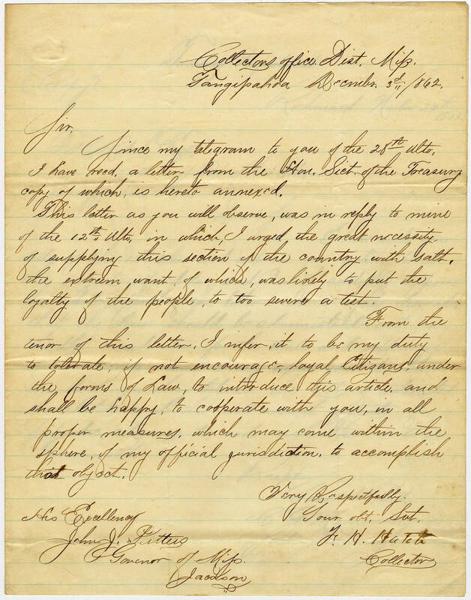 Collectors office Dist. Miss.
Tangipahoa Decembr 3d /1862.
Sir,
Since my telegram to you of the 28th Ulto,
I have recd, a letter, from the Hon. Sect. of the Treasury
copy of which, is hereto annexed.
This letter as you will observe, was in reply to mine
of the 12th Ulto, in which, I urged the great necessity
of supplying this section of the country with salt,
the extrem want, of which, was likely to put the
loyalty of the people, to too severe a test.
From the
tenor of this letter, I infer, it to be my duty
to tolerate, if not encourage, loyal Citizens, under
the forms of Law, to introduce this article, and
shall be happy, to cooperate with you, in all
proper measures, which may come within the
sphere, of my official jurisdiction, to accomplish
that object.
Very Respectfully
Your obt. Svt.
F. H. Hatch
Collector
His Excellency
John J. Pettus
Govenor of Miss.
Jackson